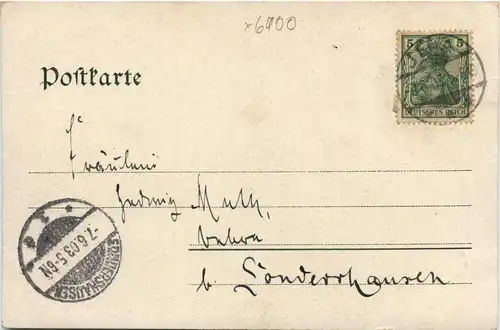 x6900
5 5
DEUTSCHES REICH
Postkarte
Fräulein
Hedwig Muth,
Bebra
b. Sondershausen
-7.6.03.5-6N.
SONDERSHAUSEN